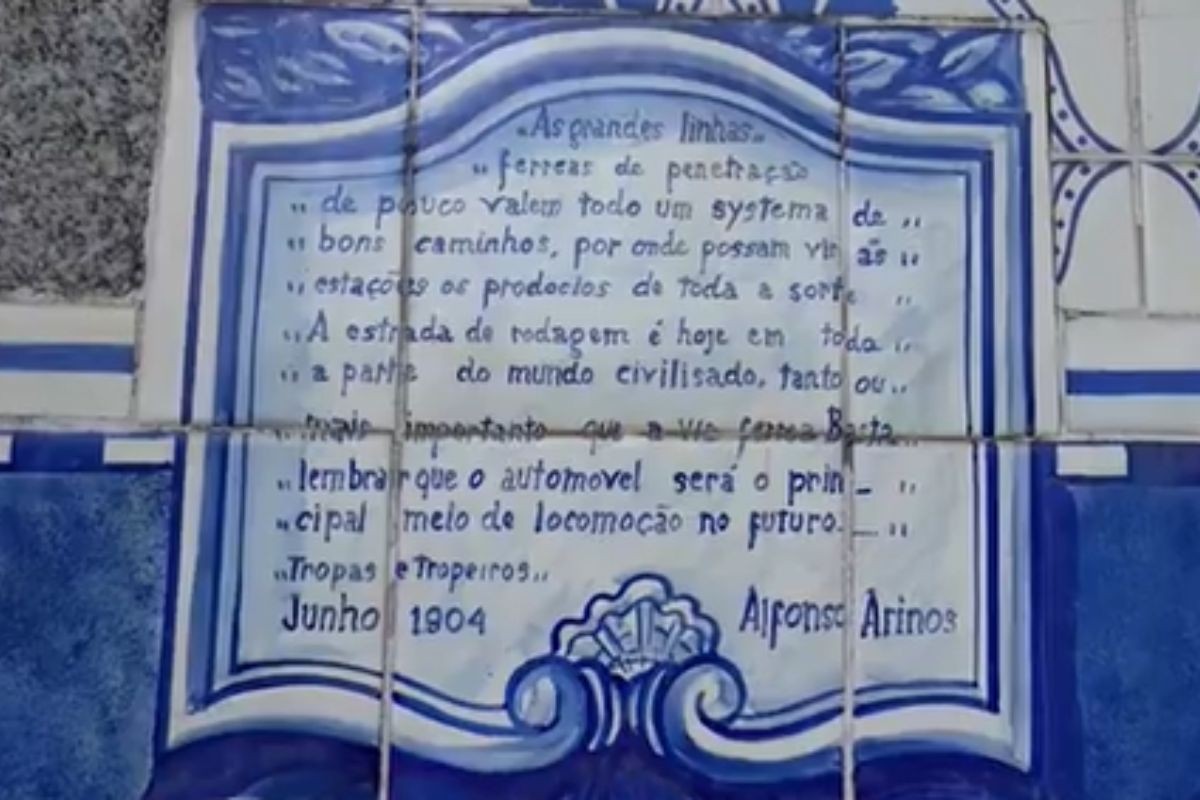 „As grandes linhas„
„ ferreas de penetração
„ de pouco valem todo um systema de „
„ bons caminhos, por onde possam vir ás „
„ estações os prodocios de toda a sorte „
„ A estrada de rodagem é hoje em toda „
„ a parte do mundo civilisado, tanto ou „
„ mais importanto que a via ferrea Basta „
„ lembrar que o automovel será o prin_ „
„ cipal meio de locomoção no futuro. _ „
„Tropas e Tropeiros„
Junho 1904 Alfonso Arinos